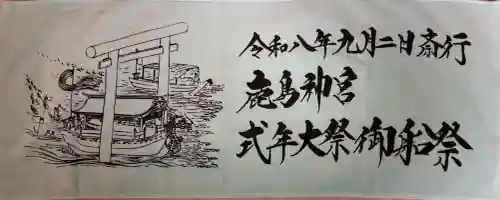 令和八年九月二日斎行
鹿島神宮
式年大祭御船祭